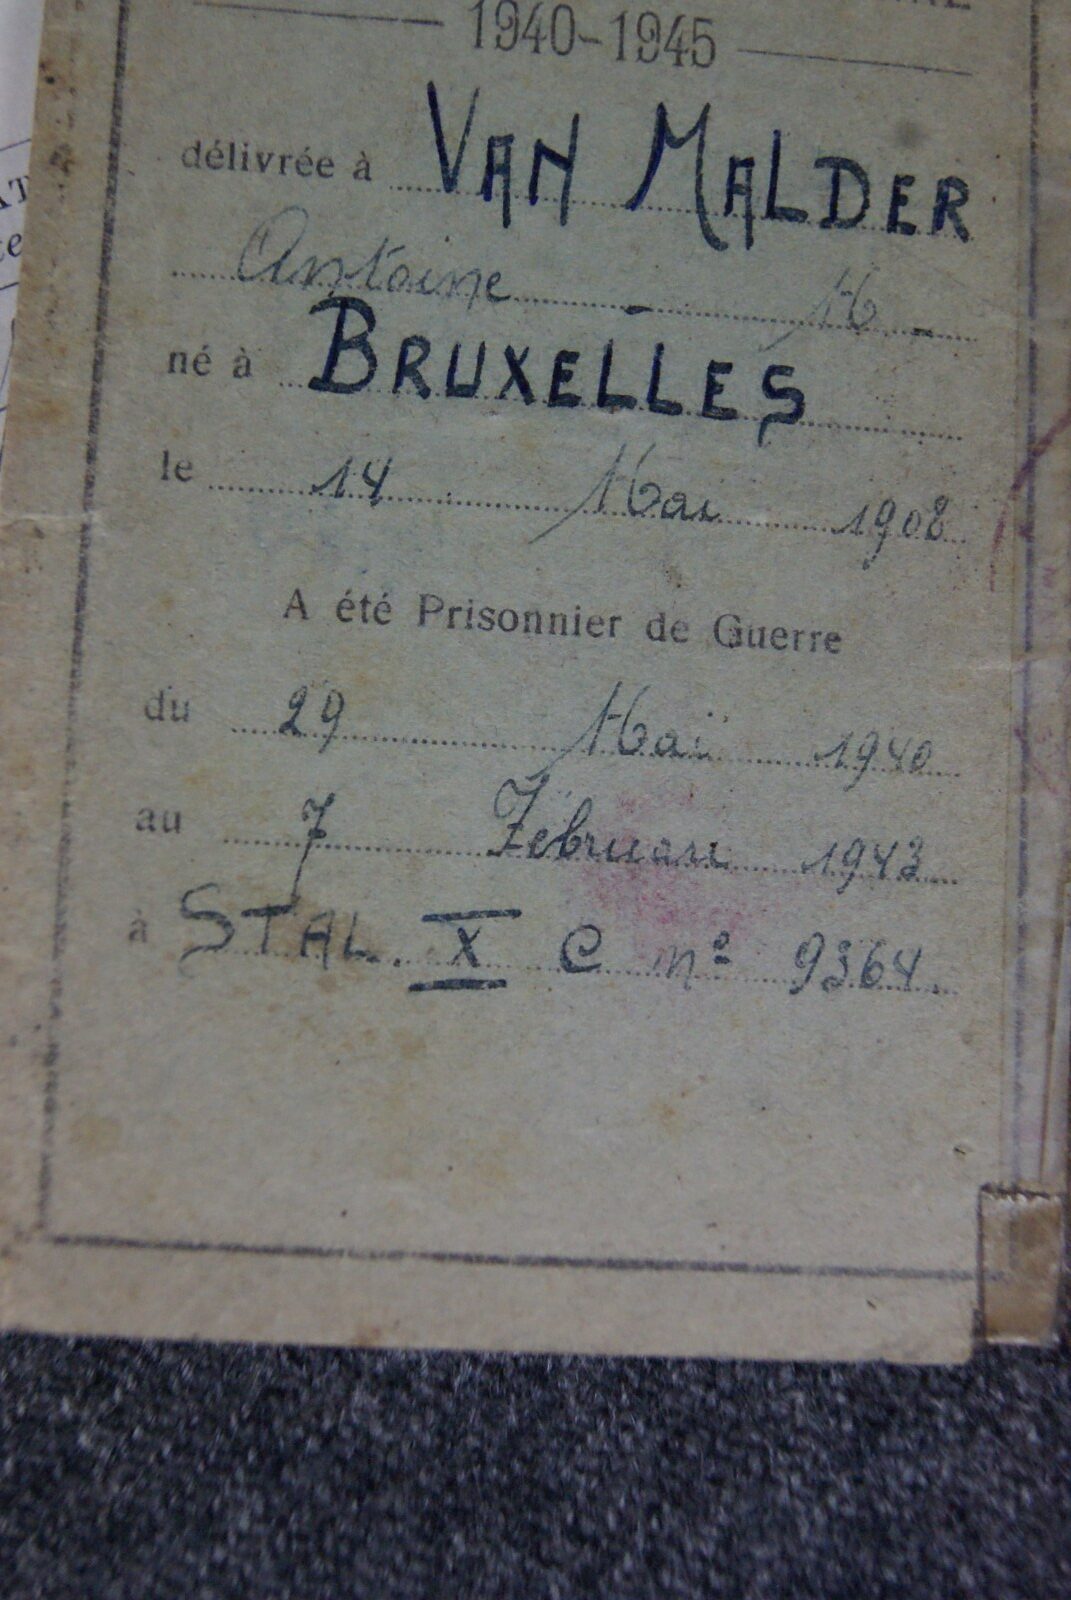 1940-1945
délivrée à VAN MALDER
Antoine - M -
né à BRUXELLES
le 14 Mai 1908
A été Prisonnier de Guerre
du 29 Mai 1940
au 7 Februari 1943
à STAL. X C nº 9364